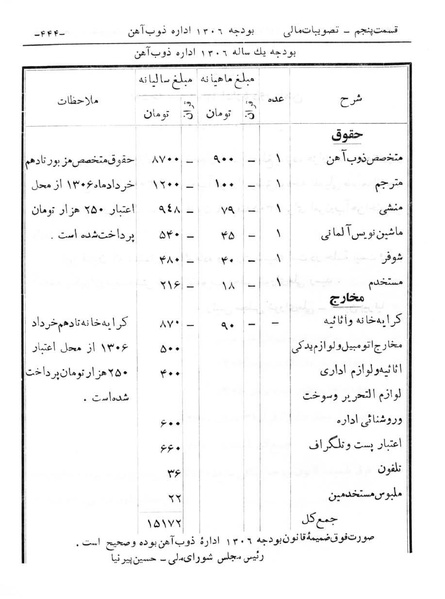 قسمت پنجم – تصویبات مالی بودجه ۱۳۰۶ اداره ذوب آهن –۴۴۴–
بودجه یك ساله ۱۳۰۶ اداره ذوب آهن
شرح عده مبلغ ماهیانه مبلغ سالیانه ملاحظات
تومان قران تومان قران
حقوق
متخصص ذوب آهن ۱ ۹۰۰ – ۸۷۰۰ – حقوق متخصص مزبور تا دهم
مترجم ۱ ۱۰۰ – ۱۲۰۰ – خرداد ماه ۱۳۰۶ از محل
منشی ۱ ۷۹ – ۹۴۸ – اعتبار ۲۵۰ هزار تومان
ماشین نویس آلمانی ۱ ۴۵ – ۵۴۰ – پرداخت شده است .
شوفر ۱ ۴۰ – ۴۸۰ –
مستخدم ۱ ۱۸ – ۲۱۶ –
مخارج
کرایه خانه و اثاثیه – ۹۰ – ۸۷۰ – کرایه خانه تا دهم خرداد
مخارج اتومبیل و لوازم یدکی ۵۰۰ ۱۳۰۶ از محل اعتبار
اثاثیه و لوازم اداری ۴۰۰ ۲۵۰ هزار تومان پرداخت
لوازم التحریر و سوخت شده است .
و روشنائی اداره ۶۰۰
اعتبار پست و تلگراف ۶۶۰
تلفون ۳۶
ملبوس مستخدمین ۲۲
جمع کل ۱۵۱۷۲
صورت فوق ضمیمهٔ قانون بودجه ۱۳۰۶ ادارهٔ ذوب آهن بوده و صحیح است .
رئیس مجلس شورای ملی – حسین پیرنیا